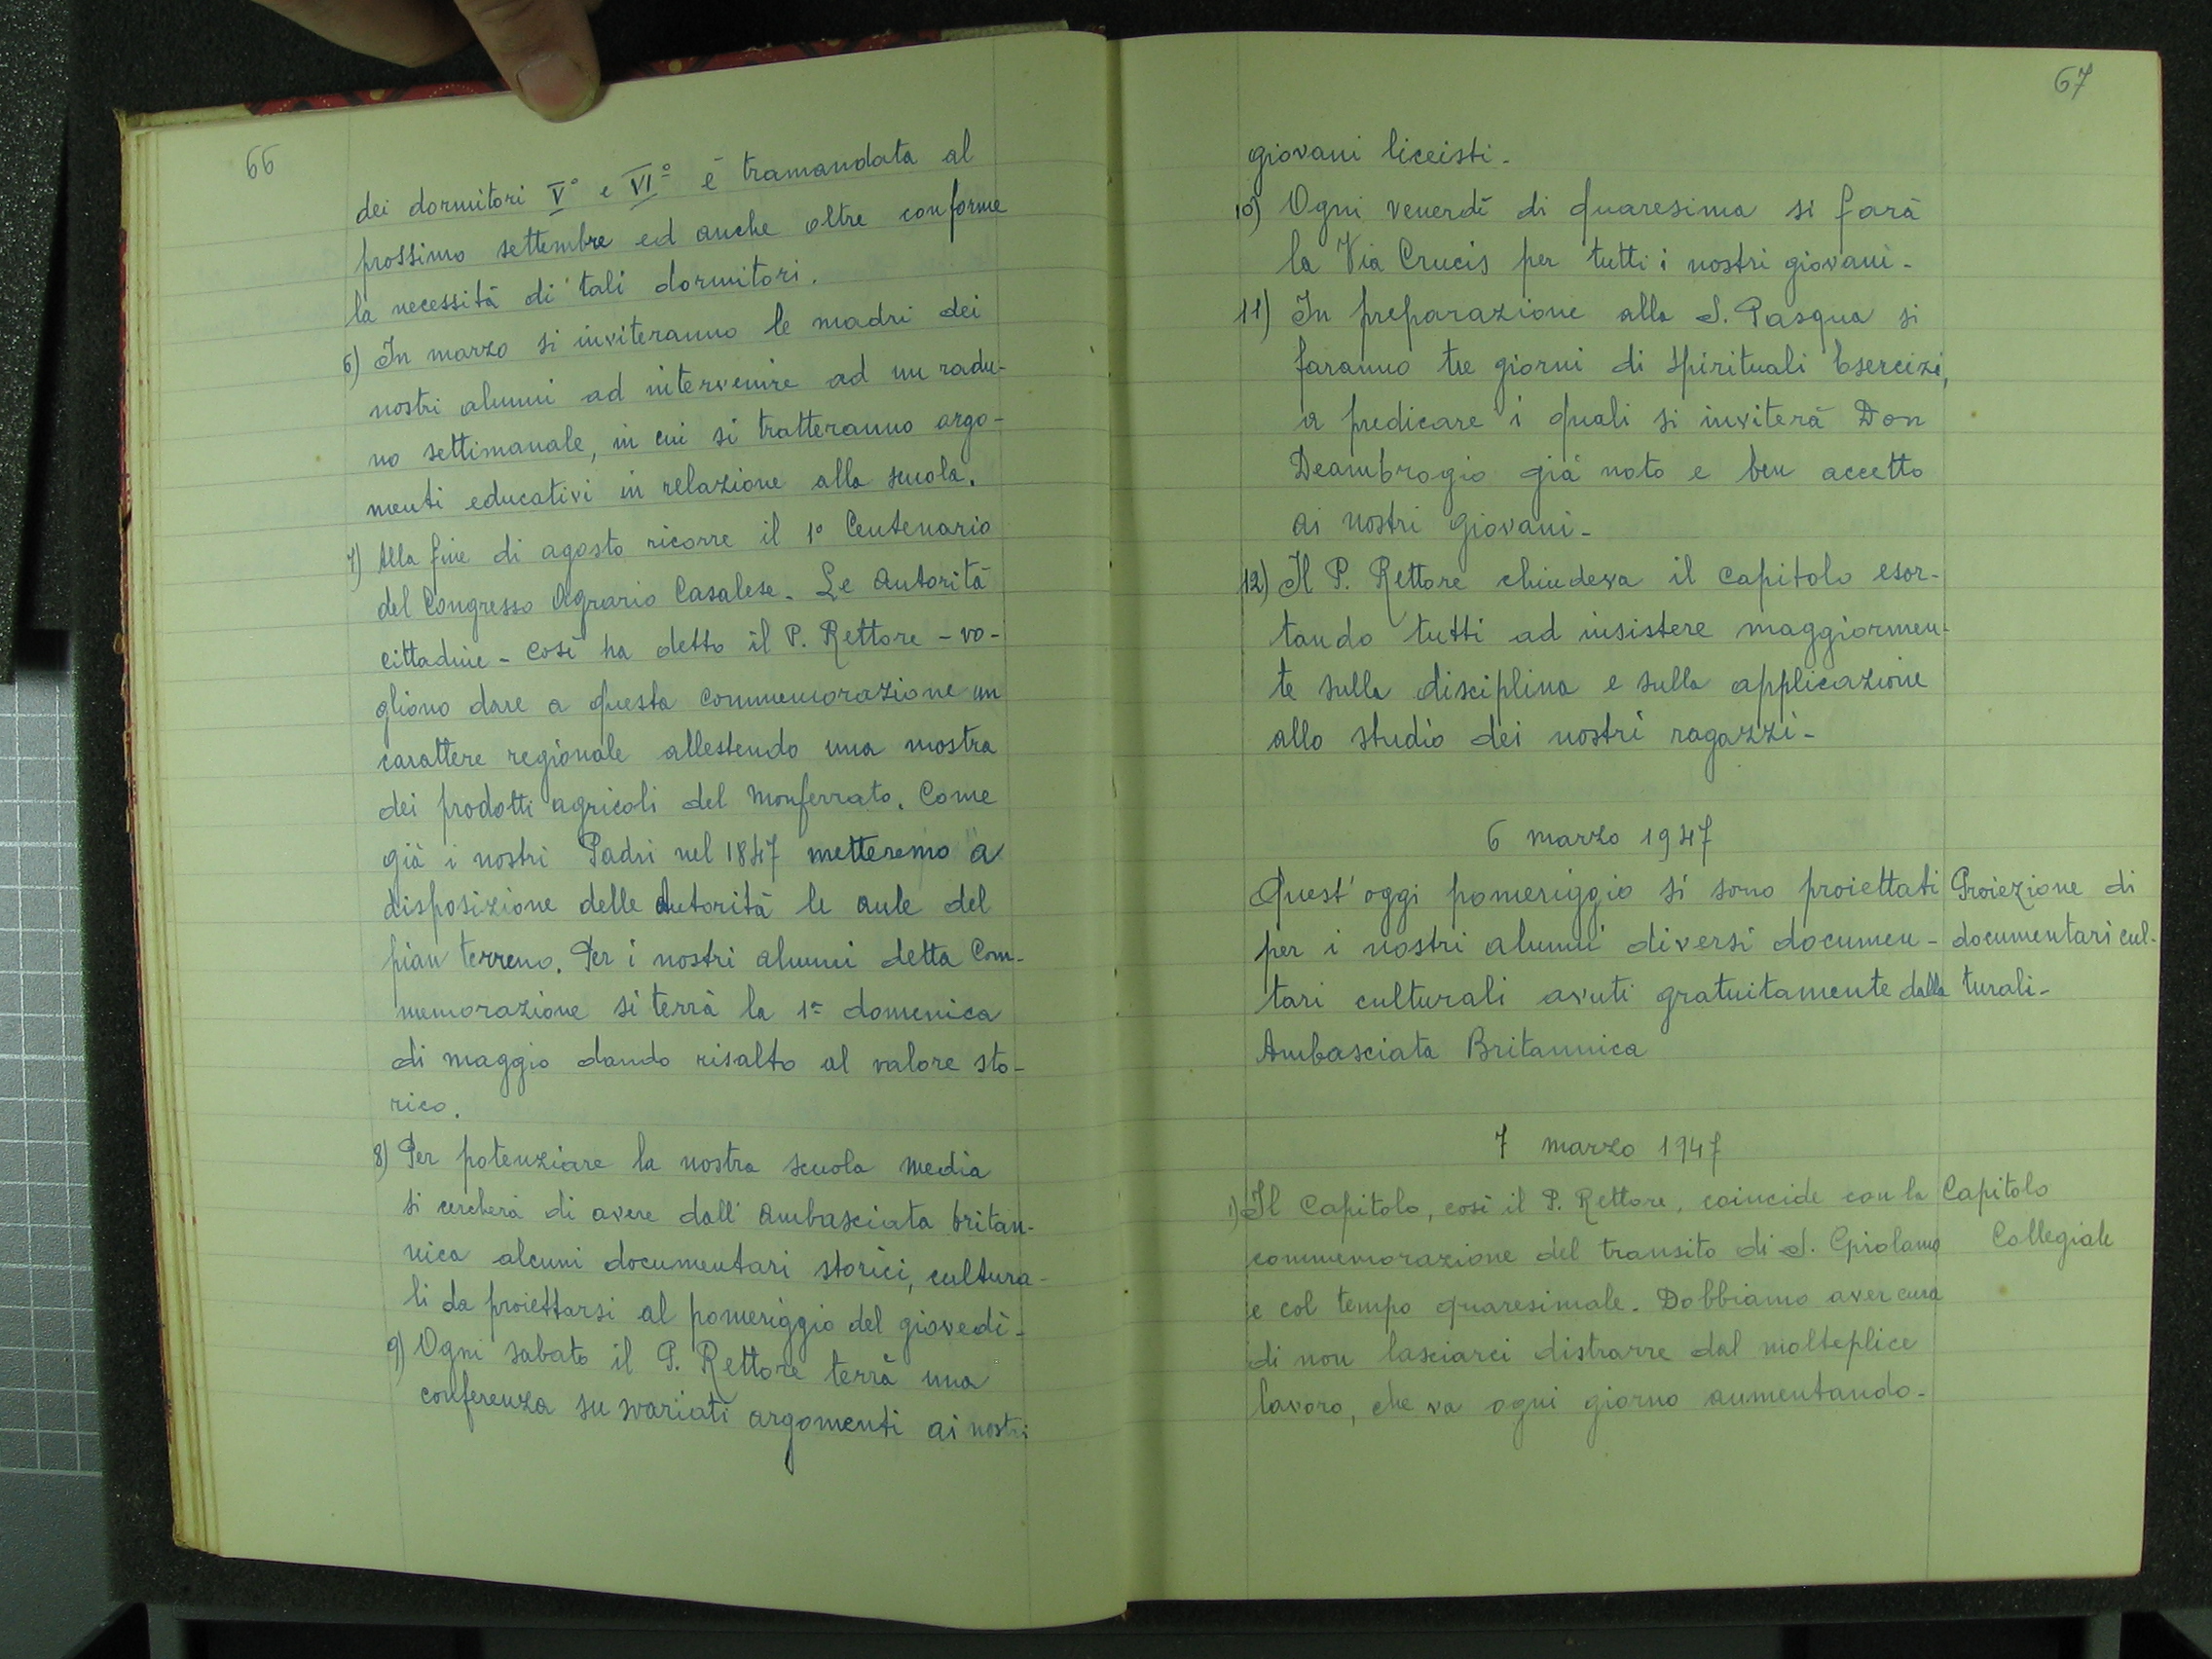 66
dei dormitori V° e VI° è tramandata al
prossimo settembre ed anche oltre conforme
la necessità di tali dormitori.
6) In marzo si inviteranno le madri dei
nostri alunni ad intervenire ad un radu-
no settimanale, in cui si tratteranno argo-
menti educativi in relazione alla scuola.
7) Alla fine di agosto ricorre il 1° Centenario
del Congresso Agrario Casalese. Le Autorità
cittadine - così ha detto il P. Rettore - vo-
gliono dare a questa commemorazione un
carattere regionale allestendo una mostra
dei prodotti agricoli del Monferrato. Come
già i nostri Padri nel 1847 metteremo a
disposizione delle Autorità le aule del
pian terreno. Per i nostri alunni detta Com-
memorazione si terrà la 1ª domenica
di maggio dando risalto al valore sto-
rico.
8) Per potenziare la nostra scuola media
si cercherà di avere dall'Ambasciata britan-
nica alcuni documentari storici, cultura-
li da proiettarsi al pomeriggio del giovedì-
9) Ogni sabato il P. Rettore terrà una
conferenza su svariati argomenti ai nostri
67
giovani liceisti-
10) Ogni venerdì di quaresima si farà
la Via Crucis per tutti i nostri giovani-
11) In preparazione alla S. Pasqua si
faranno tre giorni di Spirituali Esercizi,
a predicare i quali si inviterà Don
Deambrogio già noto e ben accetto
ai nostri giovani-
12) Il P. Rettore chiudeva il capitolo esor-
tando tutti ad insistere maggiormen-
te sulla disciplina e sulla applicazione
allo studio dei nostri ragazzi-
6 marzo 1947
Quest'oggi pomeriggio si sono proiettati
per i nostri alunni diversi documen-
tari culturali avuti gratuitamente dalla
Ambasciata Britannica
Proiezione di
documentari cul-
turali-
7 marzo 1947
1) Il Capitolo, così il P. Rettore, coincide con la
commemorazione del transito di S. Girolamo
e col tempo quaresimale. Dobbiamo aver cura
di non lasciarci distrarre dal molteplice
lavoro, che va ogni giorno aumentando-
Capitolo
Collegiale